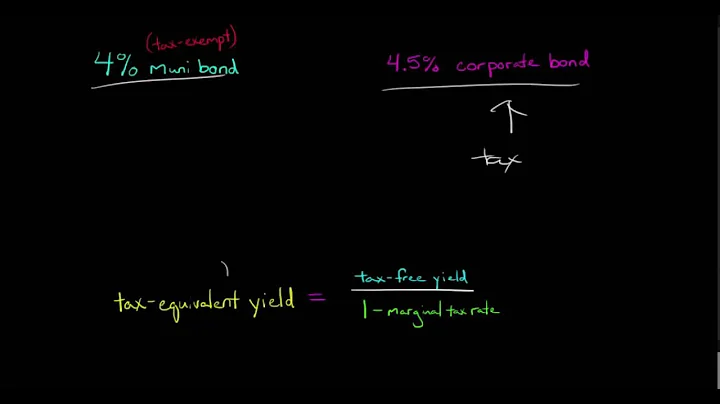 (tax-exempt)
4% Muni bond
4.5% corporate bond
tax
tax-equivalent yield = tax-free yield
1 - marginal tax rate